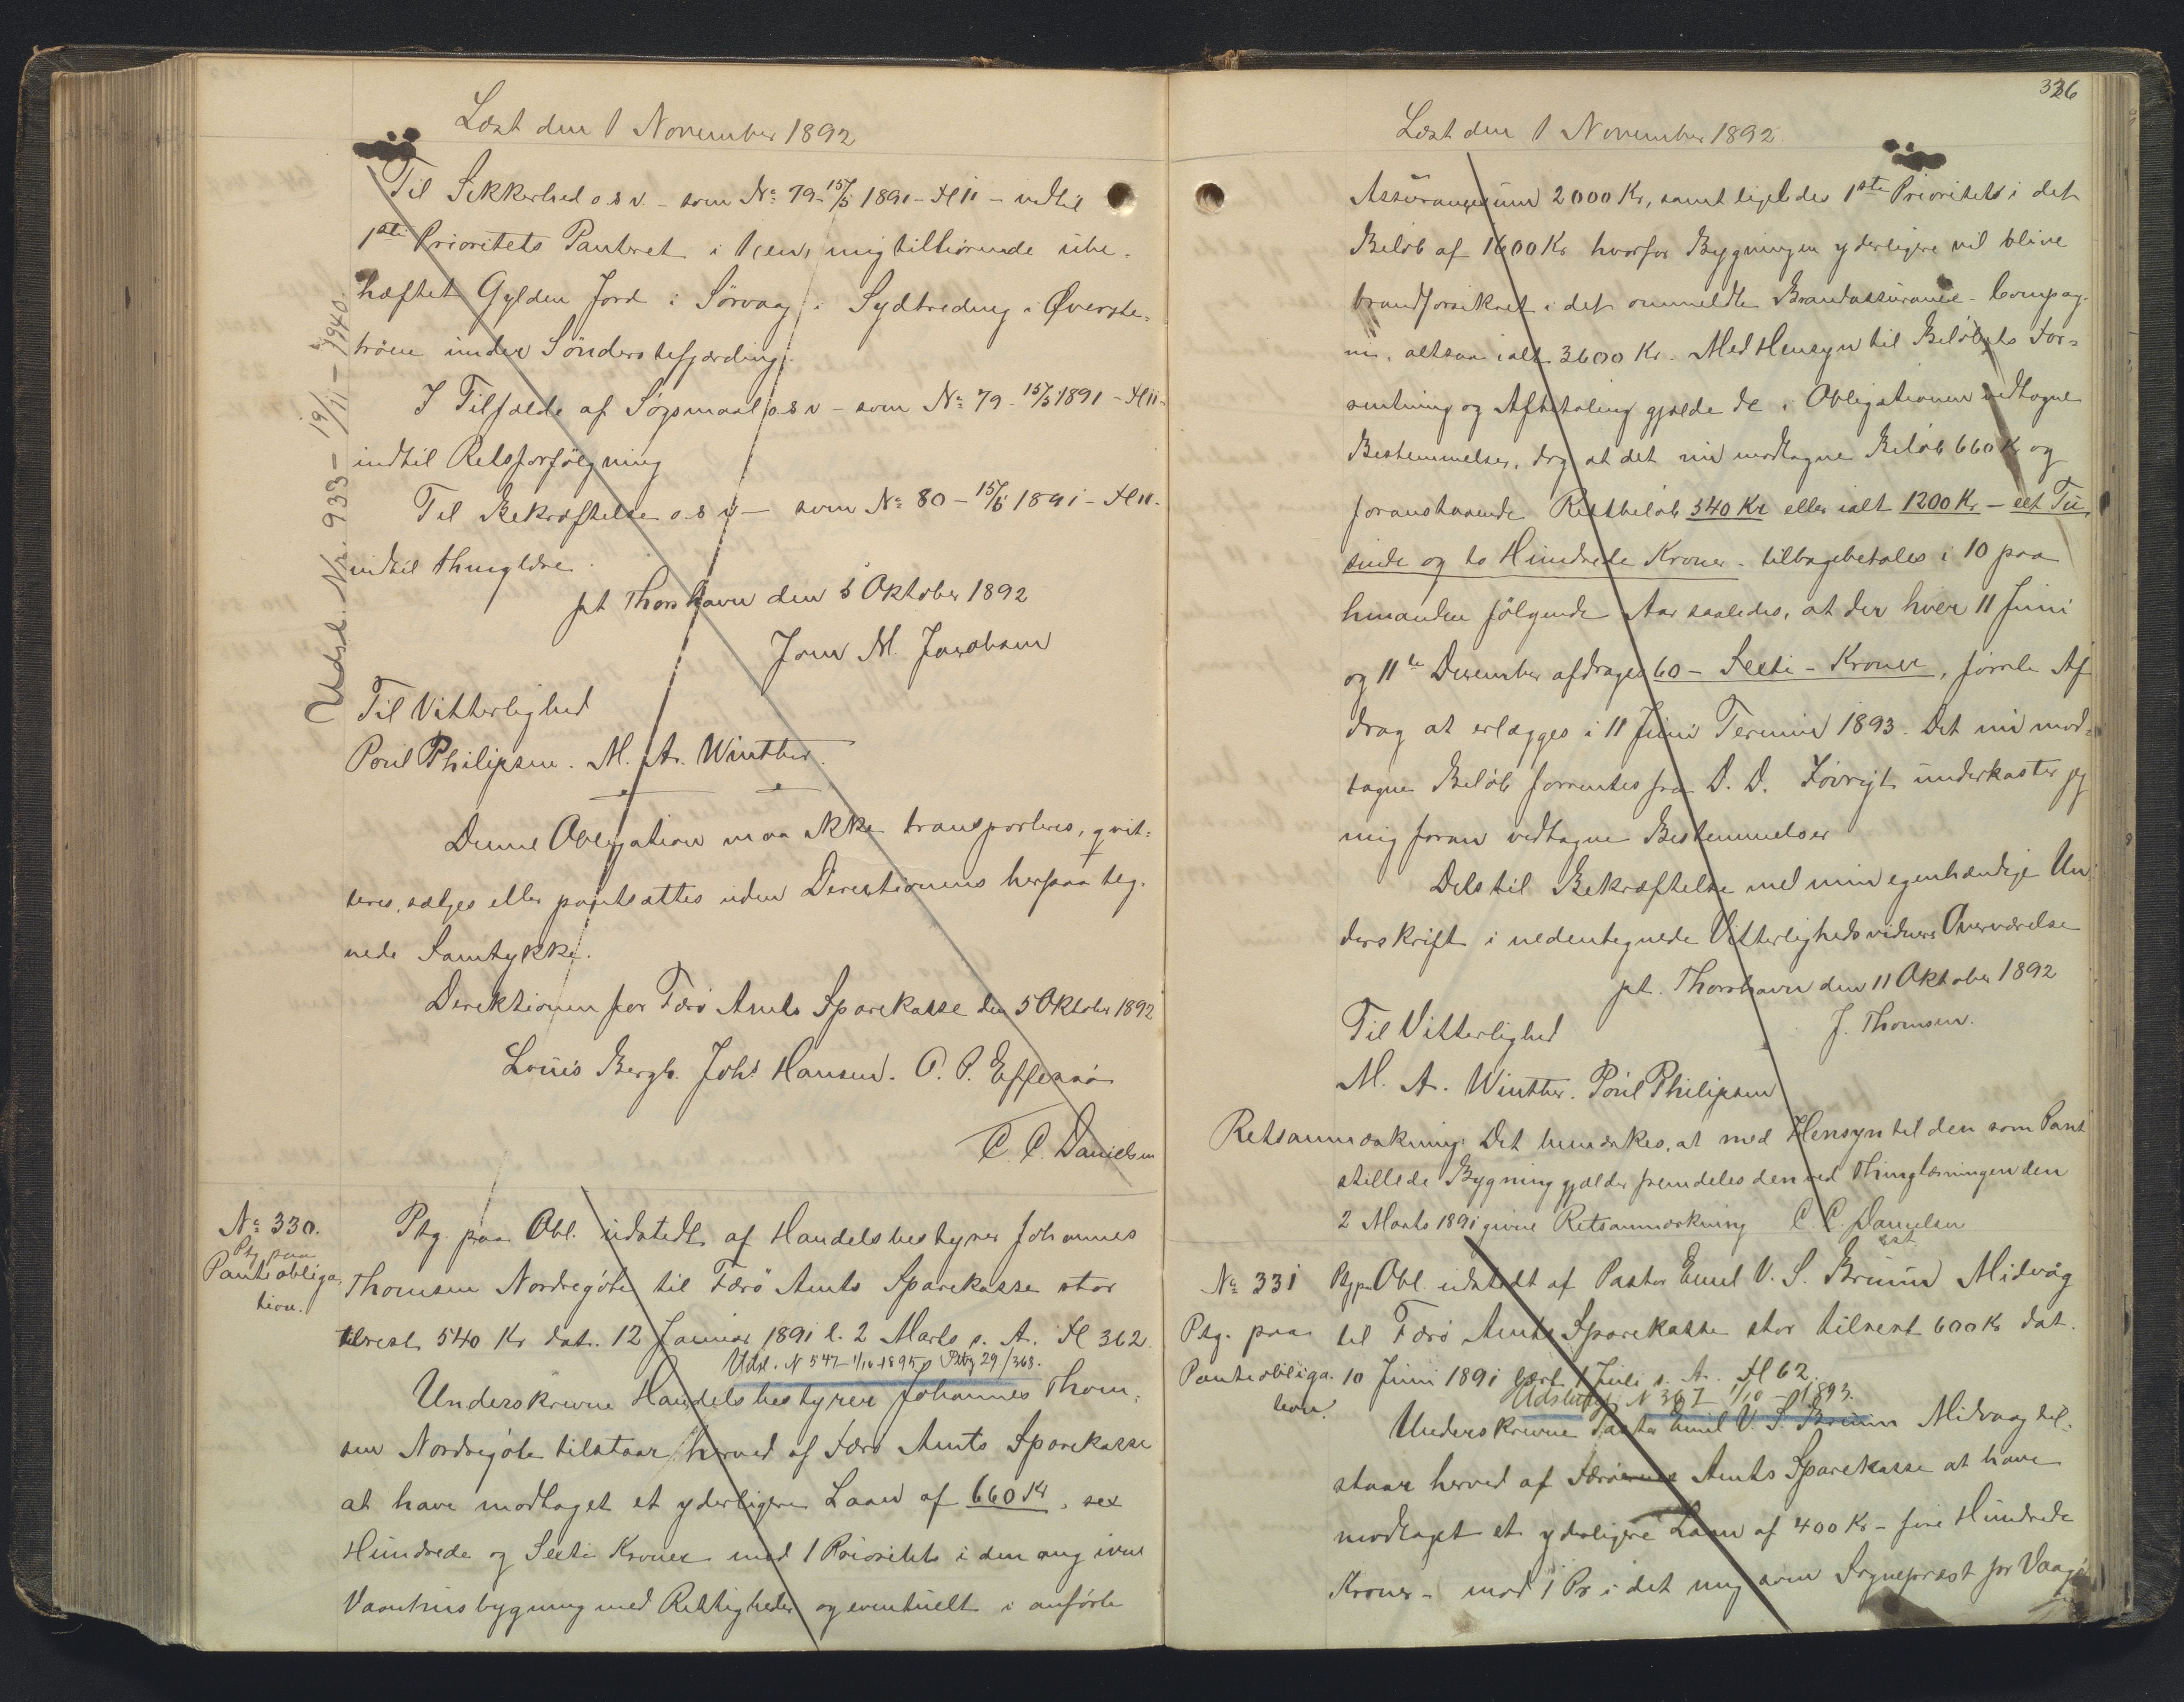 Læst den 1 November 1892
Til Sikkerhed o.s.v. - som No 79 - 15/5 1891 - Fl 11 - indtil
1ste Prioritets Panteret i 1 (en) mig tilhørende ube-
hæftet Gylden Jord i Sørvaag i Sydtreding i Øverste-
tröen under Sönderstefjerding.
I Tilfælde af Søgsmaal o.s.v - som No 79 - 15/5 1891 - Fl 11 -
indtil Retsforfölgning
Til Bekræftelse o.s.v - som No 80 - 15/5 1891 - Fl 11.
indtil thinglæse.
pt Thorshavn den 5 Oktober 1892
Jon M. Jacobsen
Til Vitterlighed
Poul Philipsen. M. A. Winther.
Denne Obligation maa ikke transporteres, qvit-
teres, sælges eller pantsættes uden Direktionens herpaa teg-
nede Samtykke.
Direktionen for Færö Amts Sparekasse den 5 Oktober 1892
Louis Bergh. Johs Hansen. O. P. Effersöe
C. C. Danielsen
Udsl. Nr. 933 - 19/11 - 1940.
No 330.
Ptg paa
Panteobliga-
tion.
Ptg. paa Obl. udstedt af Handelsbestyrer Johannes
Thomsen Nordregöte til Færö Amts Sparekasse stor
tilrest 540 Kr dat. 12 Januar 1891 l. 2 Marts s. A. Fl 362.
Udsl. N 547 1/10 1895 Ptbg 29/368.
Underskrevne Handelsbestyrer Johannes Thom-
sen Nordregöte tilstaar herved af Færö Amts Sparekasse
at have modtaget et yderligere Laan af 660 Kr, sex
Hundrede og Sexti Kroner mod 1 Prioritets i den ang ivne
Vaanhusbygning med Rettigheder og eventuelt i anförte
326
Læst den 1 November 1892.
Assurancesum 2000 Kr, samt ligeledes 1ste Prioritets i det
Belöb af 1600 Kr hvorfor Bygningen yderligere vil blive
brandforsikret i det ommeldte Brandassurance-Compag-
ni, altsaa ialt 3600 Kr. Med Hensyn til Belöbets For-
rentning og Afbetaling gjælde de i Obligationen vedtagne
Bestemmelser, dog at det nu modtagne Belöb 660 Kr og
foranstaaende Restbelöb 540 Kr eller ialt 1200 Kr - eet Tu-
sinde og to Hundrede Kroner - tilbagebetales i 10 paa
hinanden fölgende Aar saaledes, at der hver 11 Juni
og 11te December afdrages 60 - Sexti - Kroner, förste Af
drag at erlægges i 11 Juni Termin 1893. Det nu mod-
tagne Belöb forrentes fra D. D. Iövrigt underkaster jeg
mig foran vedtagne Bestemmelser
Dets til Bekræftelse med min egenhændige Un-
derskrift i nedentegnede Vitterlighedsvidners Overværelse
pt. Thorshavn den 11 Oktober 1892
Til Vitterlighed
J. Thomsen.
M. A. Winther. Poul Philipsen
Retsanmærkning: Det bemærkes, at med Hensyn til den som Pant
stillede Bygning gjælder fremdeles den ved Thinglæsningen den
2 Marts 1891 givne Retsanmærkning C. C. Danielsen
No 331
Ptg. paa
Panteobliga-
tion.
Ptg paa Obl. udstedt af Pastor Emil V. S. Bruun Midvåg
til Færö Amts Sparekasse stor tilrest 600 Kr dat.
10 Juni 1891 læst 1 Juli s. A. Fl 62.
Udslettet N 367 1/10 - 1893.
Underskrevne Pastor Emil V. S. Bruun Midvaag til-
staar herved af Færöernes Amts Sparekasse at have
modtaget et yderligere Laan af 400 Kr - fire Hundrede
Kroner - mod 1 Pr i det mig som Sognepræst for Vaagö